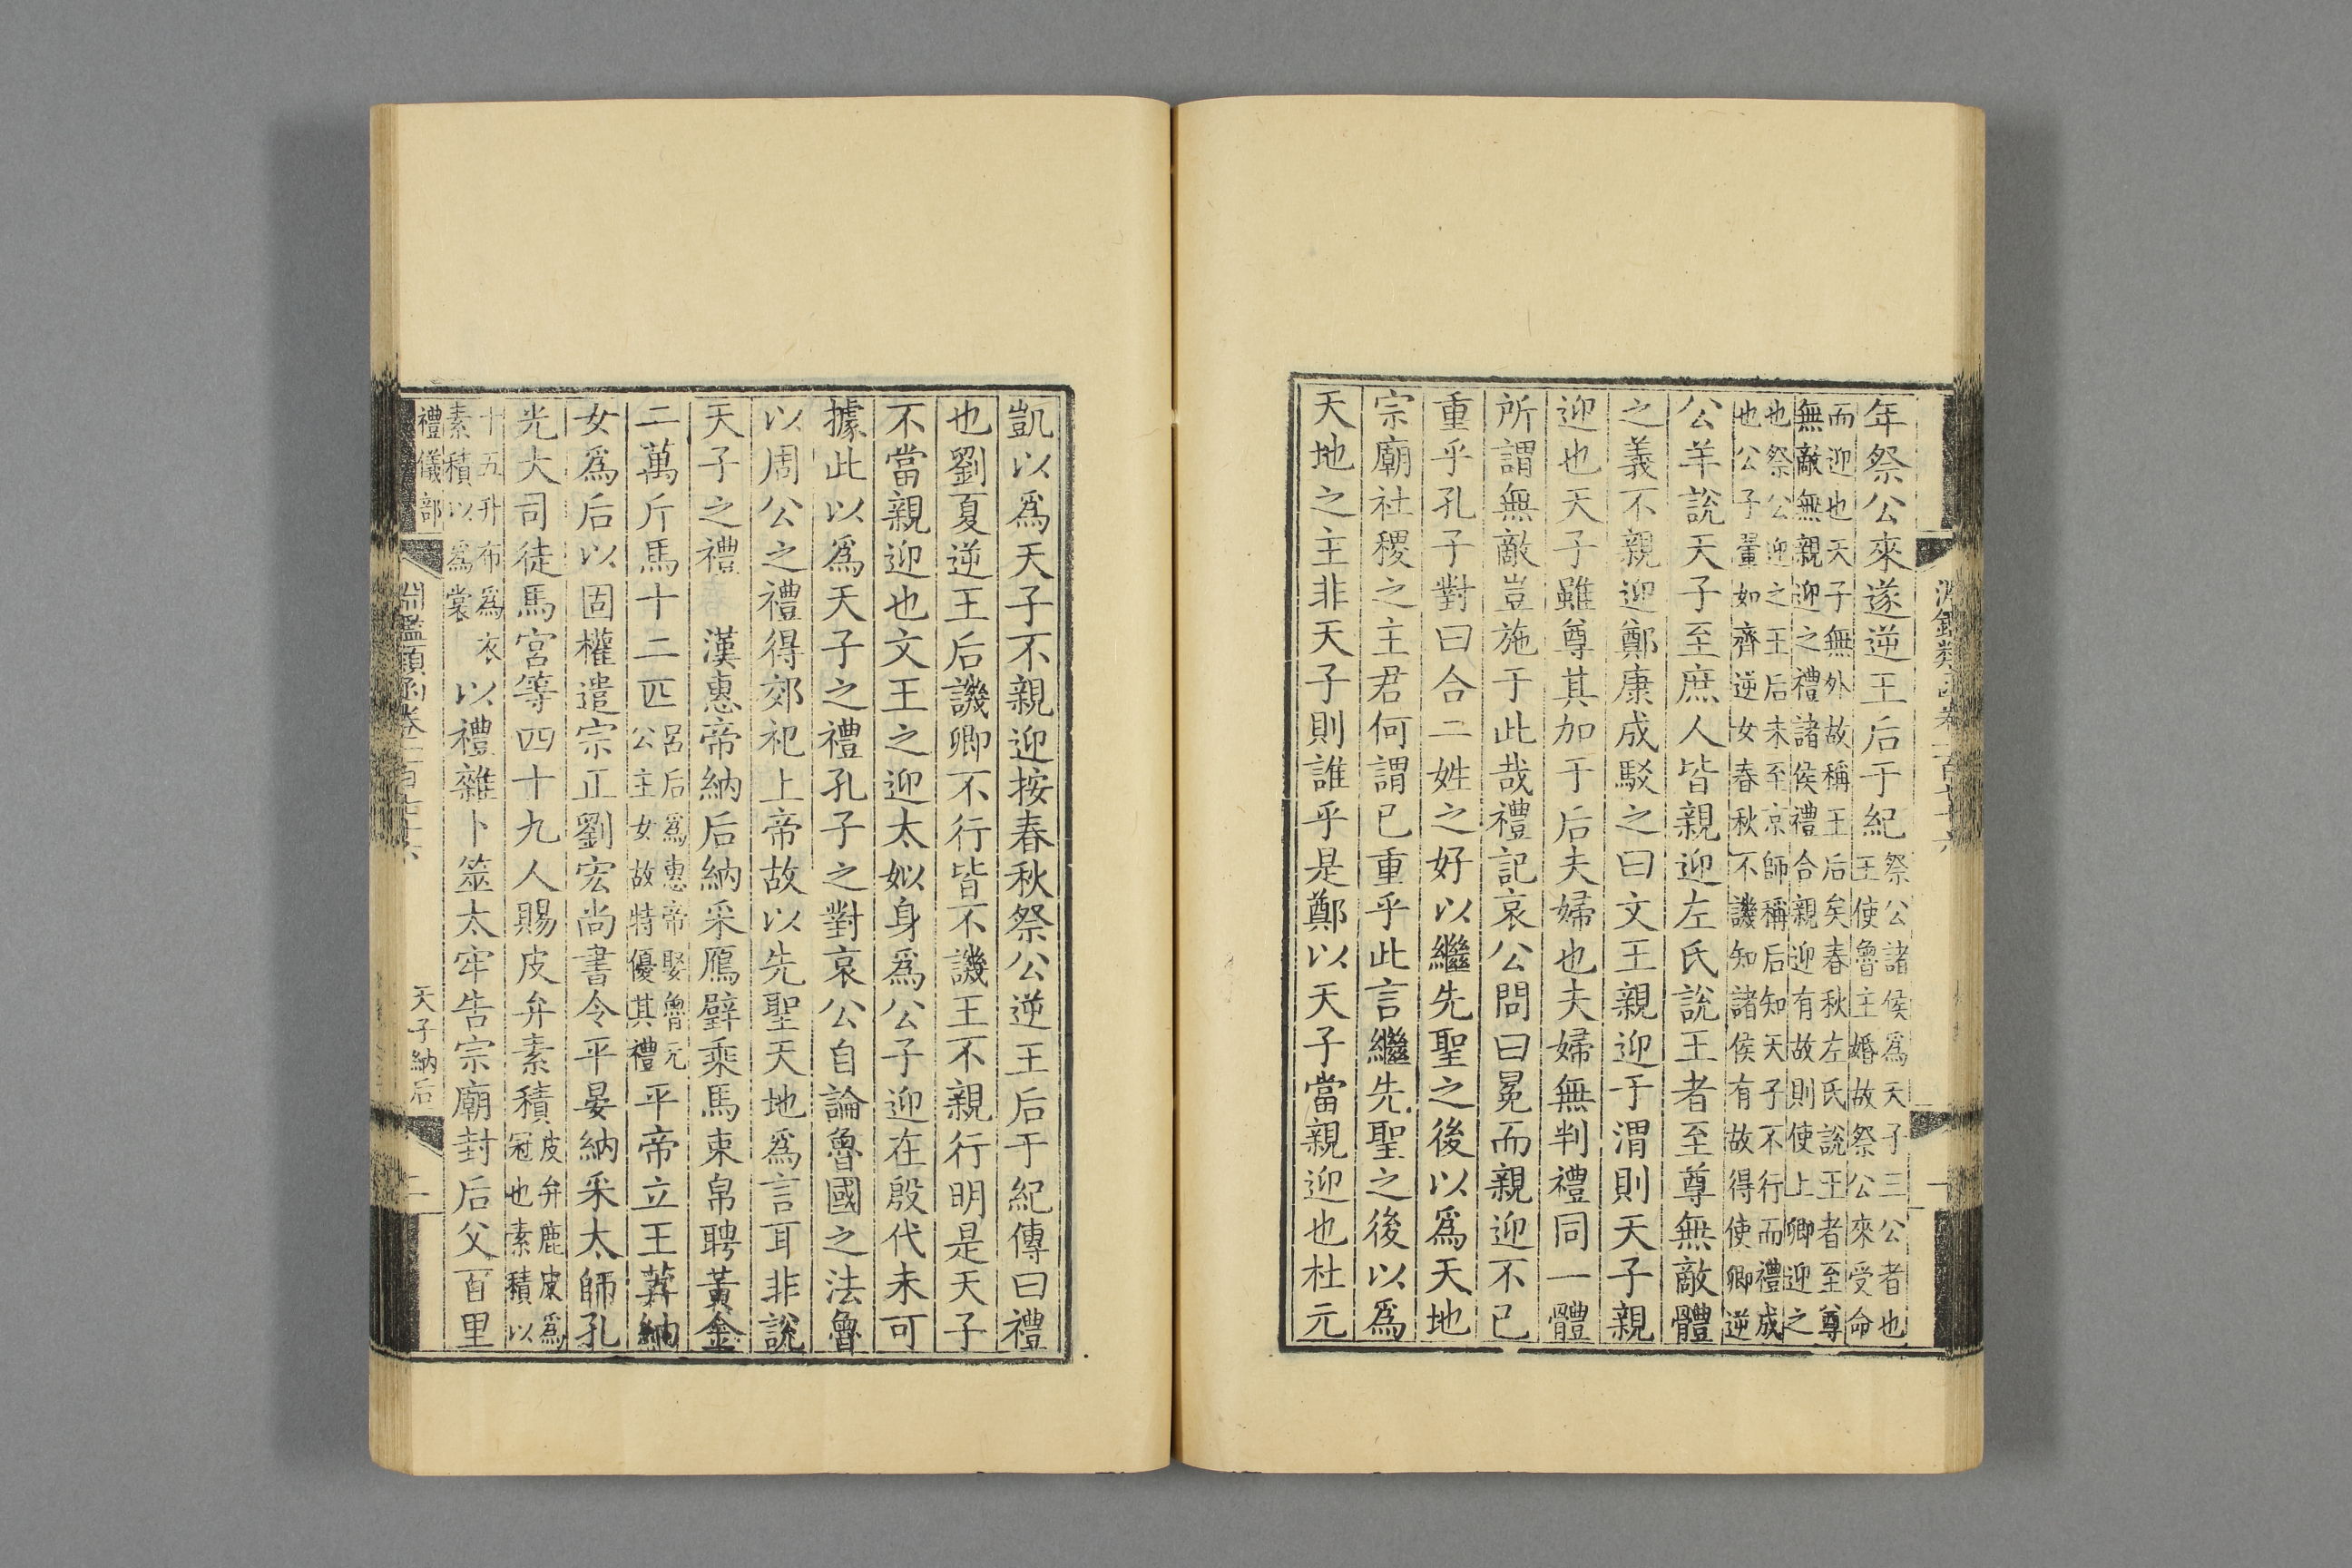 年祭公來遂逆王后于紀祭公諸侯爲天子三公者也
王使魯主婚故祭公來受命
而迎也天子無外故稱王后矣春秋左氏說王者至尊
無敵無親迎之禮諸侯禮合親迎有故則使上卿迎之
也祭公迎之王后未至京師稱后知天子不行而禮成
也公子翬如齊逆女春秋不譏知諸侯有故得使卿逆
公羊說天子至庶人皆親迎左氏說王者至尊無敵體
之義不親迎鄭康成駁之曰文王親迎于渭則天子親
迎也天子雖尊其加于后夫婦也夫婦無判禮同一體
所謂無敵豈施于此哉禮記哀公問曰冕而親迎不已
重乎孔子對曰合二姓之好以繼先聖之後以爲天地
宗廟社稷之主君何謂已重乎此言繼先聖之後以爲
天地之主非天子則誰乎是鄭以天子當親迎也杜元
凱以爲天子不親迎按春秋祭公逆王后于紀傳曰禮
也劉夏逆王后譏卿不行皆不譏王不親行明是天子
不當親迎也文王之迎太姒身爲公子迎在殷代未可
據此以爲天子之禮孔子之對哀公自論魯國之法魯
以周公之禮得郊祀上帝故以先聖天地爲言耳非說
天子之禮 漢惠帝納后納采鴈璧乘馬束帛聘黃金
二萬斤馬十二匹呂后爲惠帝娶魯元
公主女故特優其禮平帝立王莽納
女爲后以固權遣宗正劉宏尚書令平晏納采太師孔
光大司徒馬宮等四十九人賜皮弁素積皮弁鹿皮爲
冠也素積以
十五升布爲衣
素積以爲裳以禮雜卜筮太牢告宗廟封后父百里
禮儀部 淵鑑類函卷一百七十六 天子納后 二